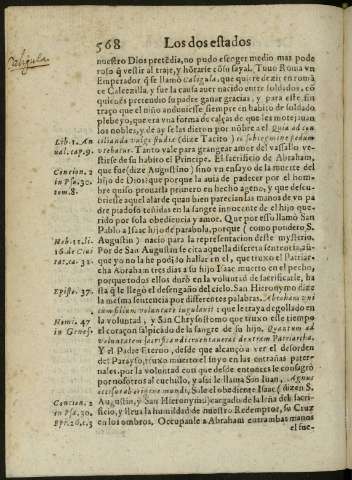 568 Los dos estados
Caligula.
nuestro Dios pretẽdia, no pudo escoger medio mas pode
roso q̃ vestir al traje, y hõrarse cõ su sayal. Tuuo Roma vn
Emperador q̃ se llamò Caligula, que quiere dezir en romã
ce Calcezilla, y fue la causa auer nacido entre soldados, cõ
quienẽs pretendio su padre ganar gracias, y para este fin
traço que el niño anduuiesse siempre en habito de soldado
plebeyo, que era vna forma de calças de que les mote
los nobles, y de ay se las dieron por nõbre
Lib. 1. An
nal. cap. 9.
(dize Tacito)
Tanto vale para grangear amor del vassallo ve-
stirse de su habito el Principe. El sacrificio de Abraham,
Concion. 2
in Psa. 30.
tom. 8.
que fue (dize Augustino) sino vn ensayo de la muerte del
hijo de Dios: que porque la auia de padecer por el hom-
bre quiso prouarla primero en hecho ageno, y que descu-
briesse aquel alarde quan bien parecian las manos de vn pa
dre piadoso teñidas en la sangre innocente de el hijo que-
rido por sola obediencia y amor. Que por esso llamò San
Pablo a Isaac hijo de parabola, porque (como pondero S.
Heb. 11. li.
16. de Ciui
tat. ca. 32.
Augustin) nacio para la representacion deste mysterio.
Por de San Augustin se cita aquella discreta sentencia, aũ-
que yo no la he podido hallar en el, que truxo el Patriar-
cha Abraham tres dias a su hijo Isaac muerto en el pecho,
porque todos ellos durò en la voluntad de sacrificarle, ha
sta q̃ le llegò el desengaño del cielo. San Hieronymo dize
Episto. 37.
la mesma sentencia por differentes palabras. Abraham vni
cum filium voluntate iugulauit: que le traya degollado en
Homi. 47
in Genes.
la voluntad, y San Chrysostomo que truxo este tiempo
el coraçon salpicado de la sangre de su hijo. Quantum ad
voluntatem sacrificandi cruentauerat dextram Patriarcha.
Y el Padre Eterno, desde que alcançoa ver el desorden
del Parayso, truxo muerto el suyo en las entrañas pater-
nales, por la voluntad con que desde entonces le consagrò
por nosotros al cuchillo, y assi le llama San Iuan, Agnus
occisus ab origine mundi. Sale el obediente Isaac (dizen S.
Concion. 2
in Psa. 30.
Augustin, y San Hieronymo) cargado de la leña del sacri-
ficio, y lleua la humildad de nuestro Redemptor, su Cruz
en los ombros. Occupanle a Abraham entrambas manos
el fue-